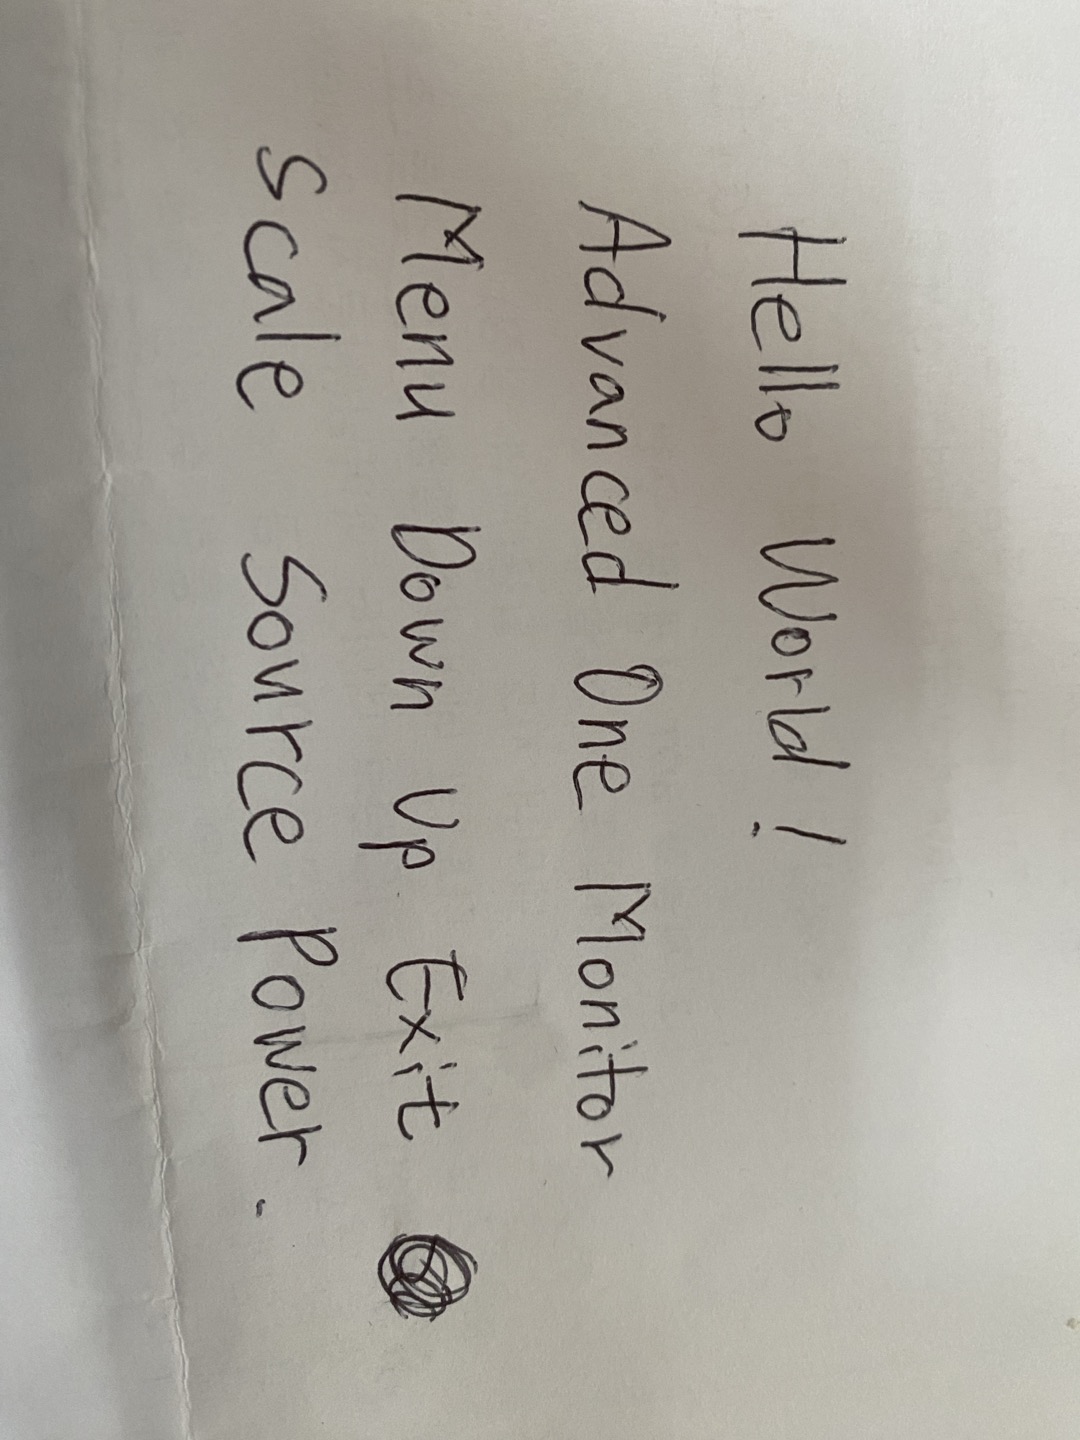 Hello World !
Advanced One Monitor
Menu Down Up Exit
Scale Source Power.